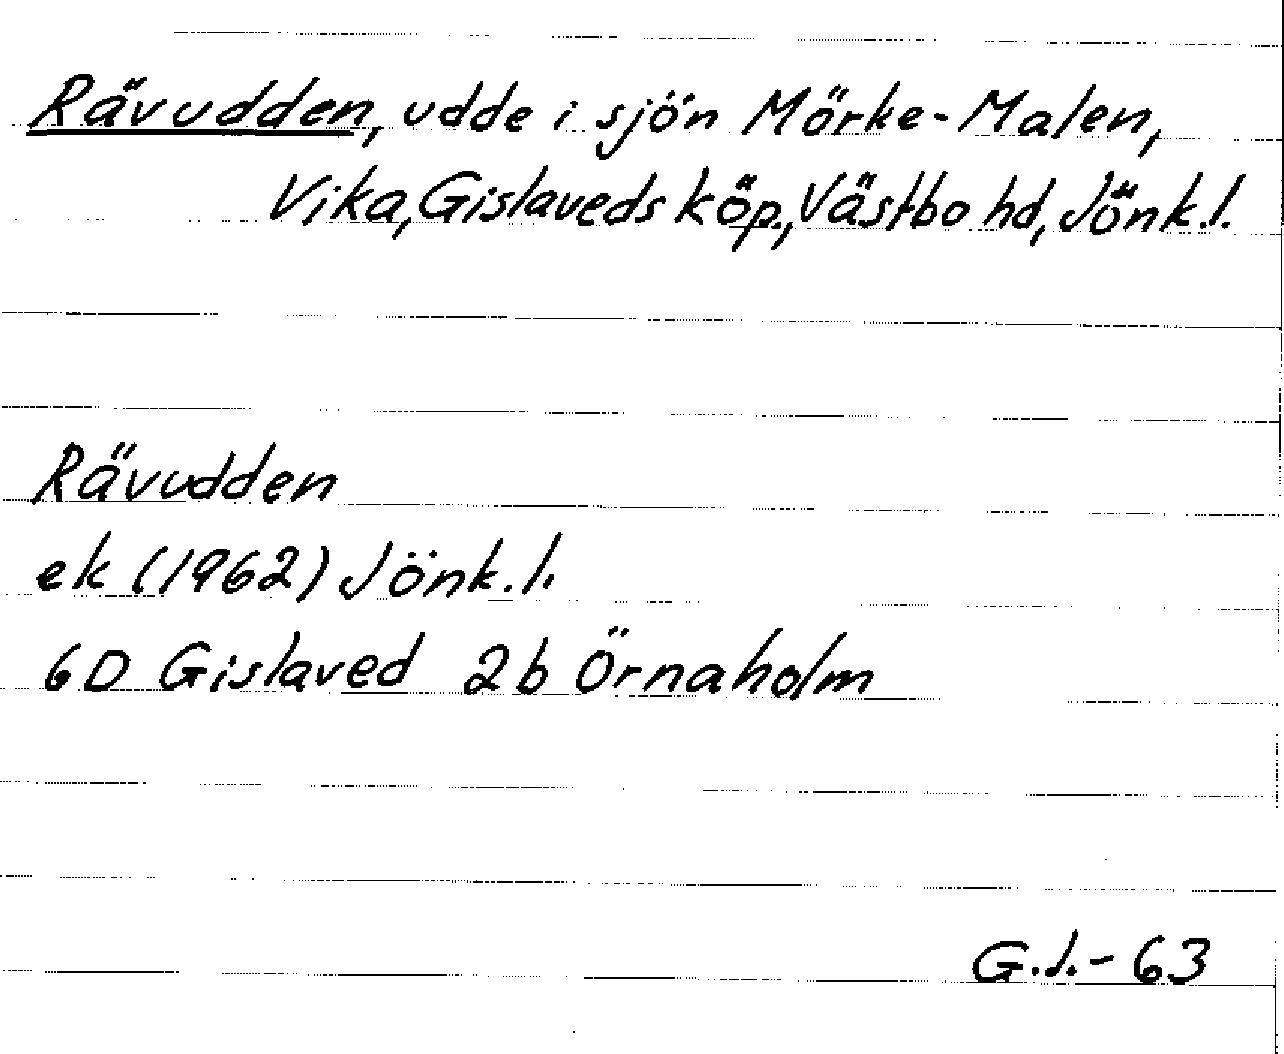 Rävudden, udde i sjön Mörke-Malen,
Vika, Gislaveds köp., Västbo hd, Jönk.l.
Rävudden
ek (1962) Jönk.l.
6D Gislaved 2b Örnaholm
G.J.-63